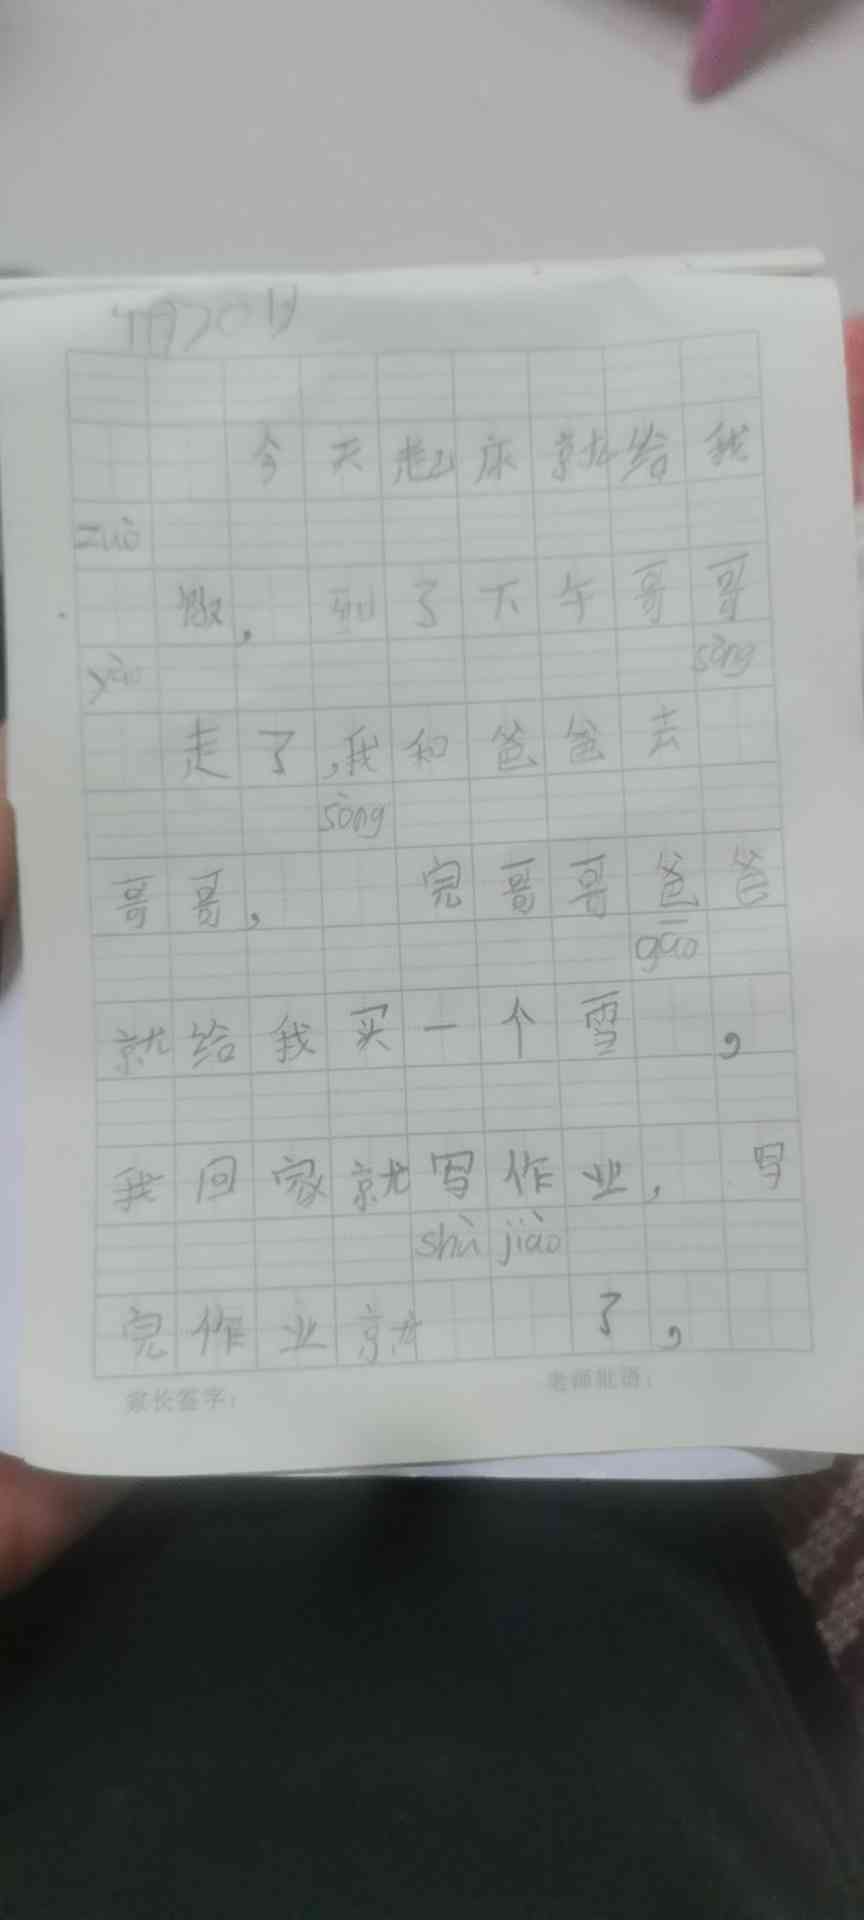 4月20日
今天起床就给我
zuò
饭，到了下午哥哥
yào sòng
走了，我和爸爸去
sòng
哥哥，完哥哥爸爸
gāo
就给我买一个雪，
我回家就写作业，写
shùi jiào
完作业就了，
家长签字：老师批语：